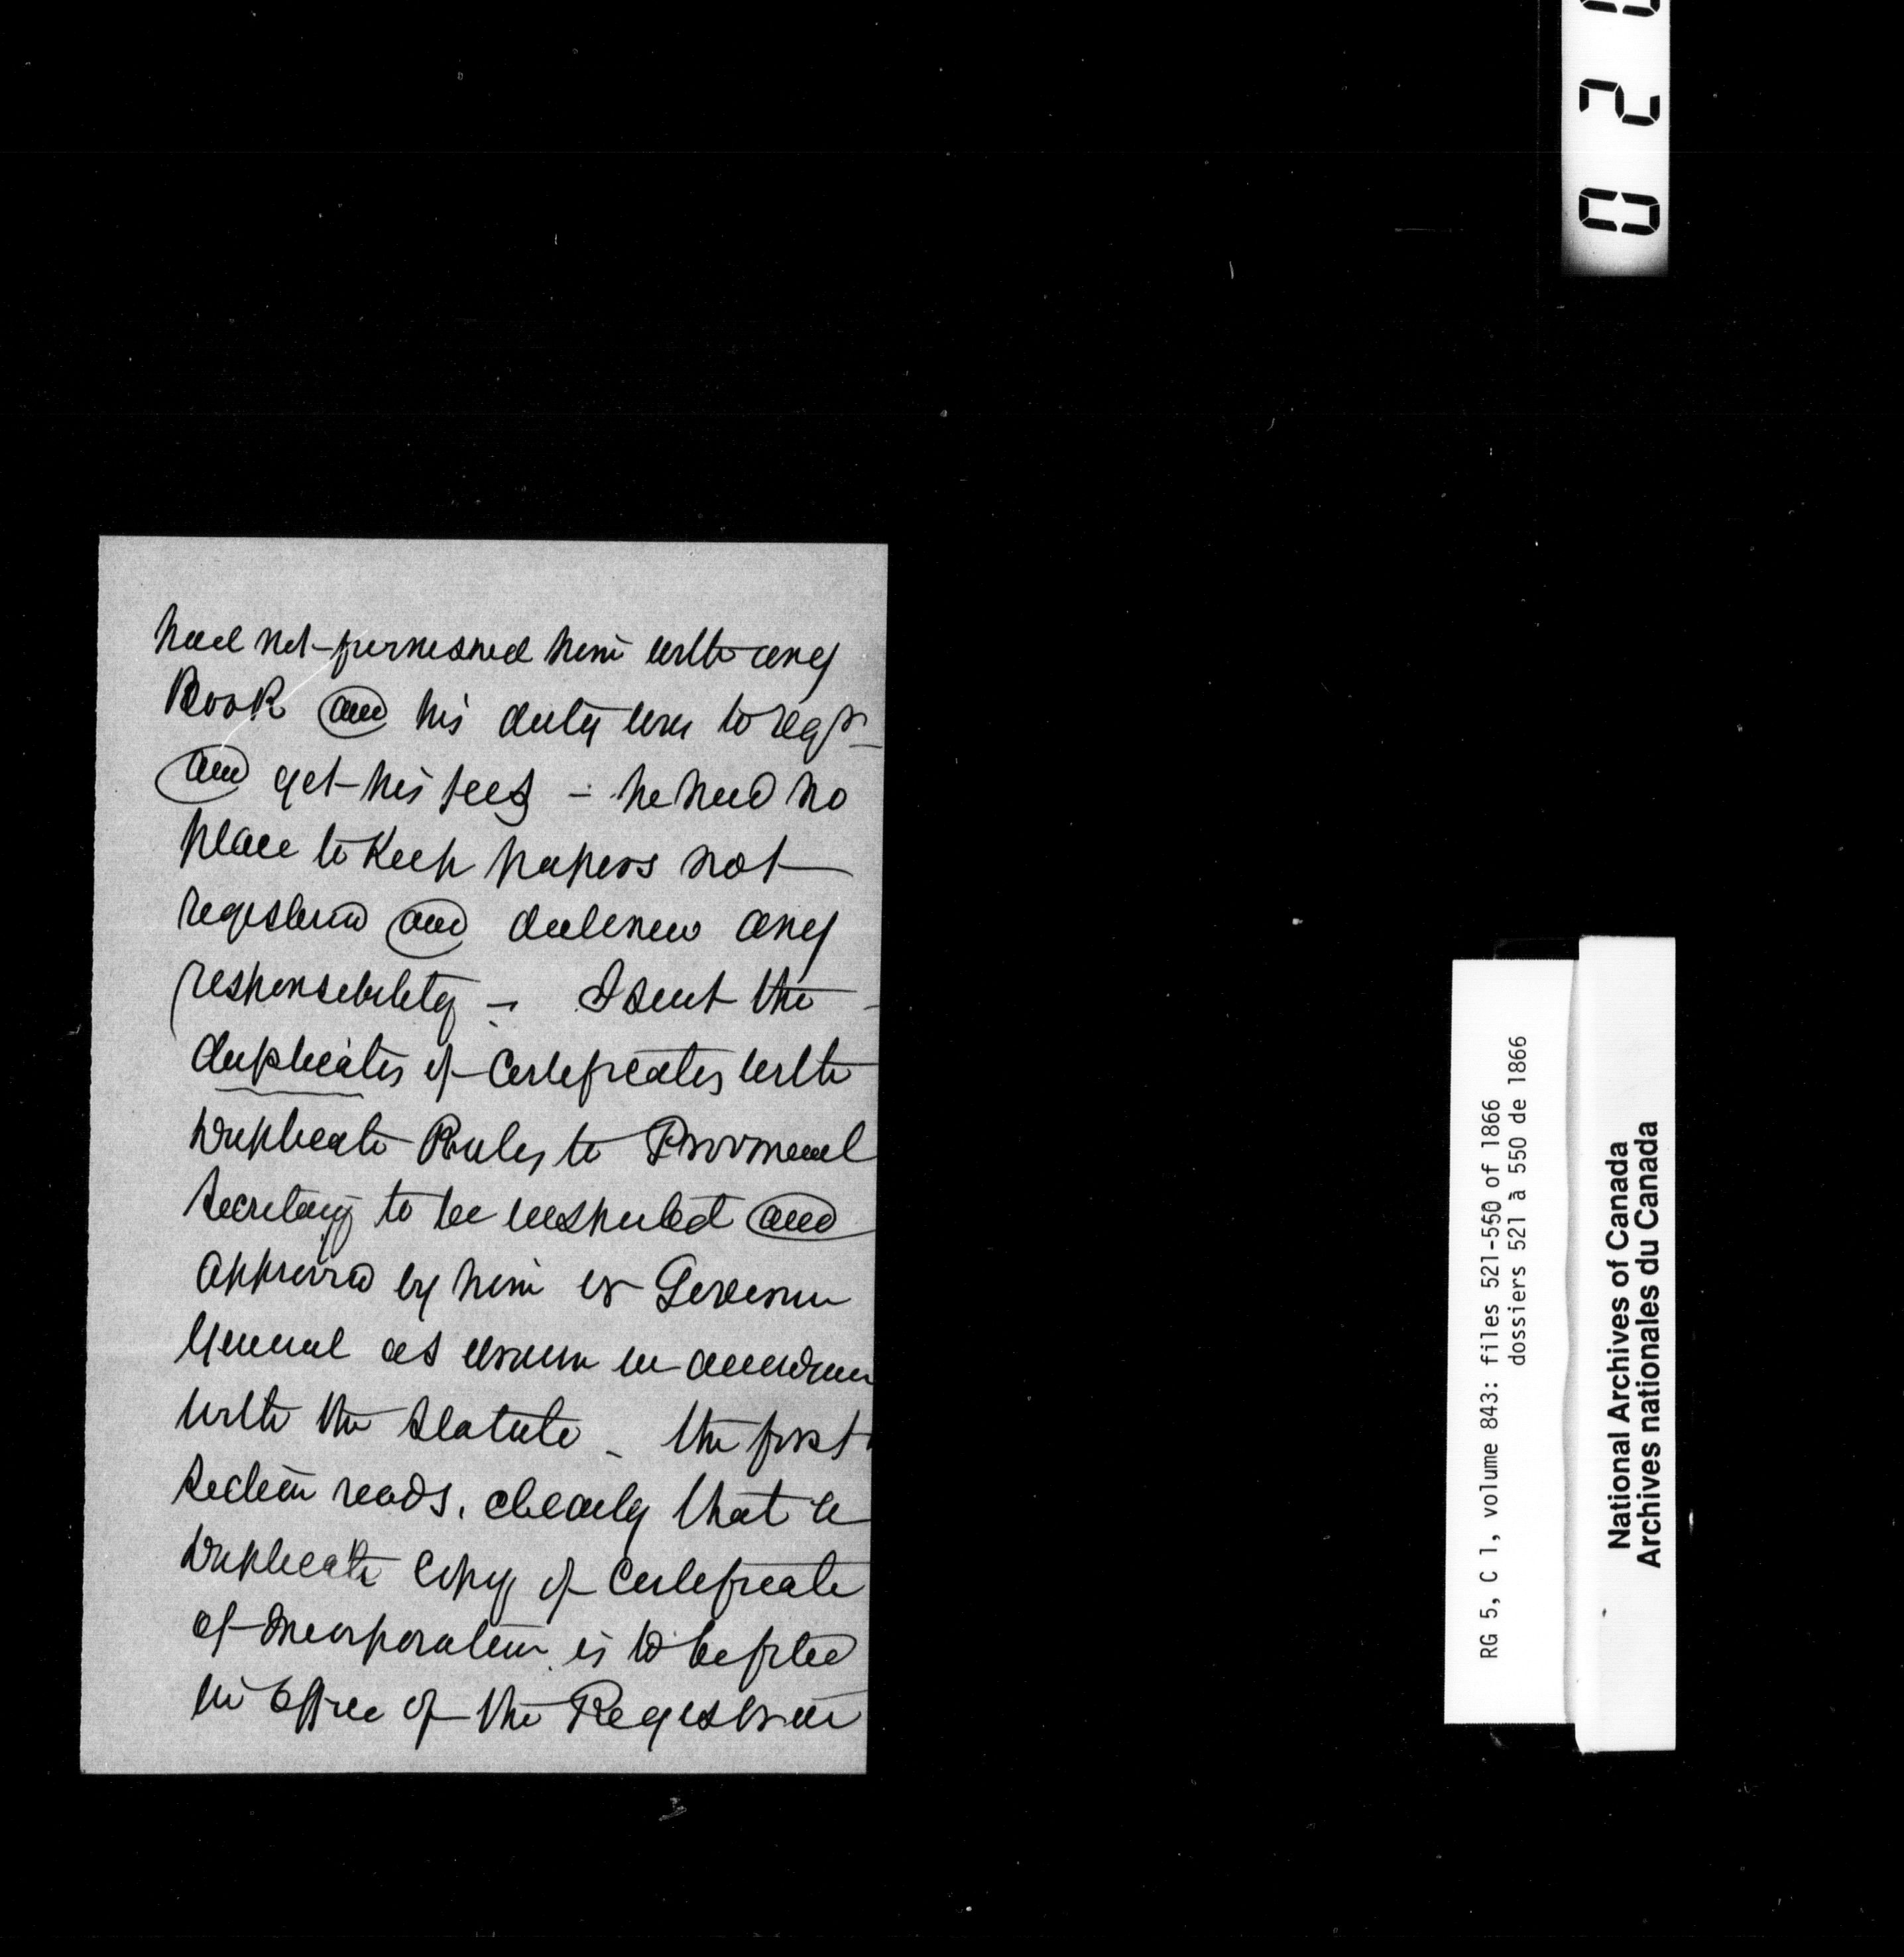 had not furnished him with any
Book and his duty was to regr
and get his fees – he had no
place to keep papers not
registered and any
responsibility – I sent the
duplicates of Certificates with
Duplicate Rules to Provincial
Secretary to be inspected and
approved by him or Governor
General as in
with the Statute – the first
Section reads, clearly that a
Duplicate Copy of Certificate
of Incorporation is to be filed
in Office of the Registrar
0 2
RG 5, C 1, volume 843: files 521-550 of 1866
dossiers 521 à 550 de 1866
National Archives of Canada
Archives nationales du Canada